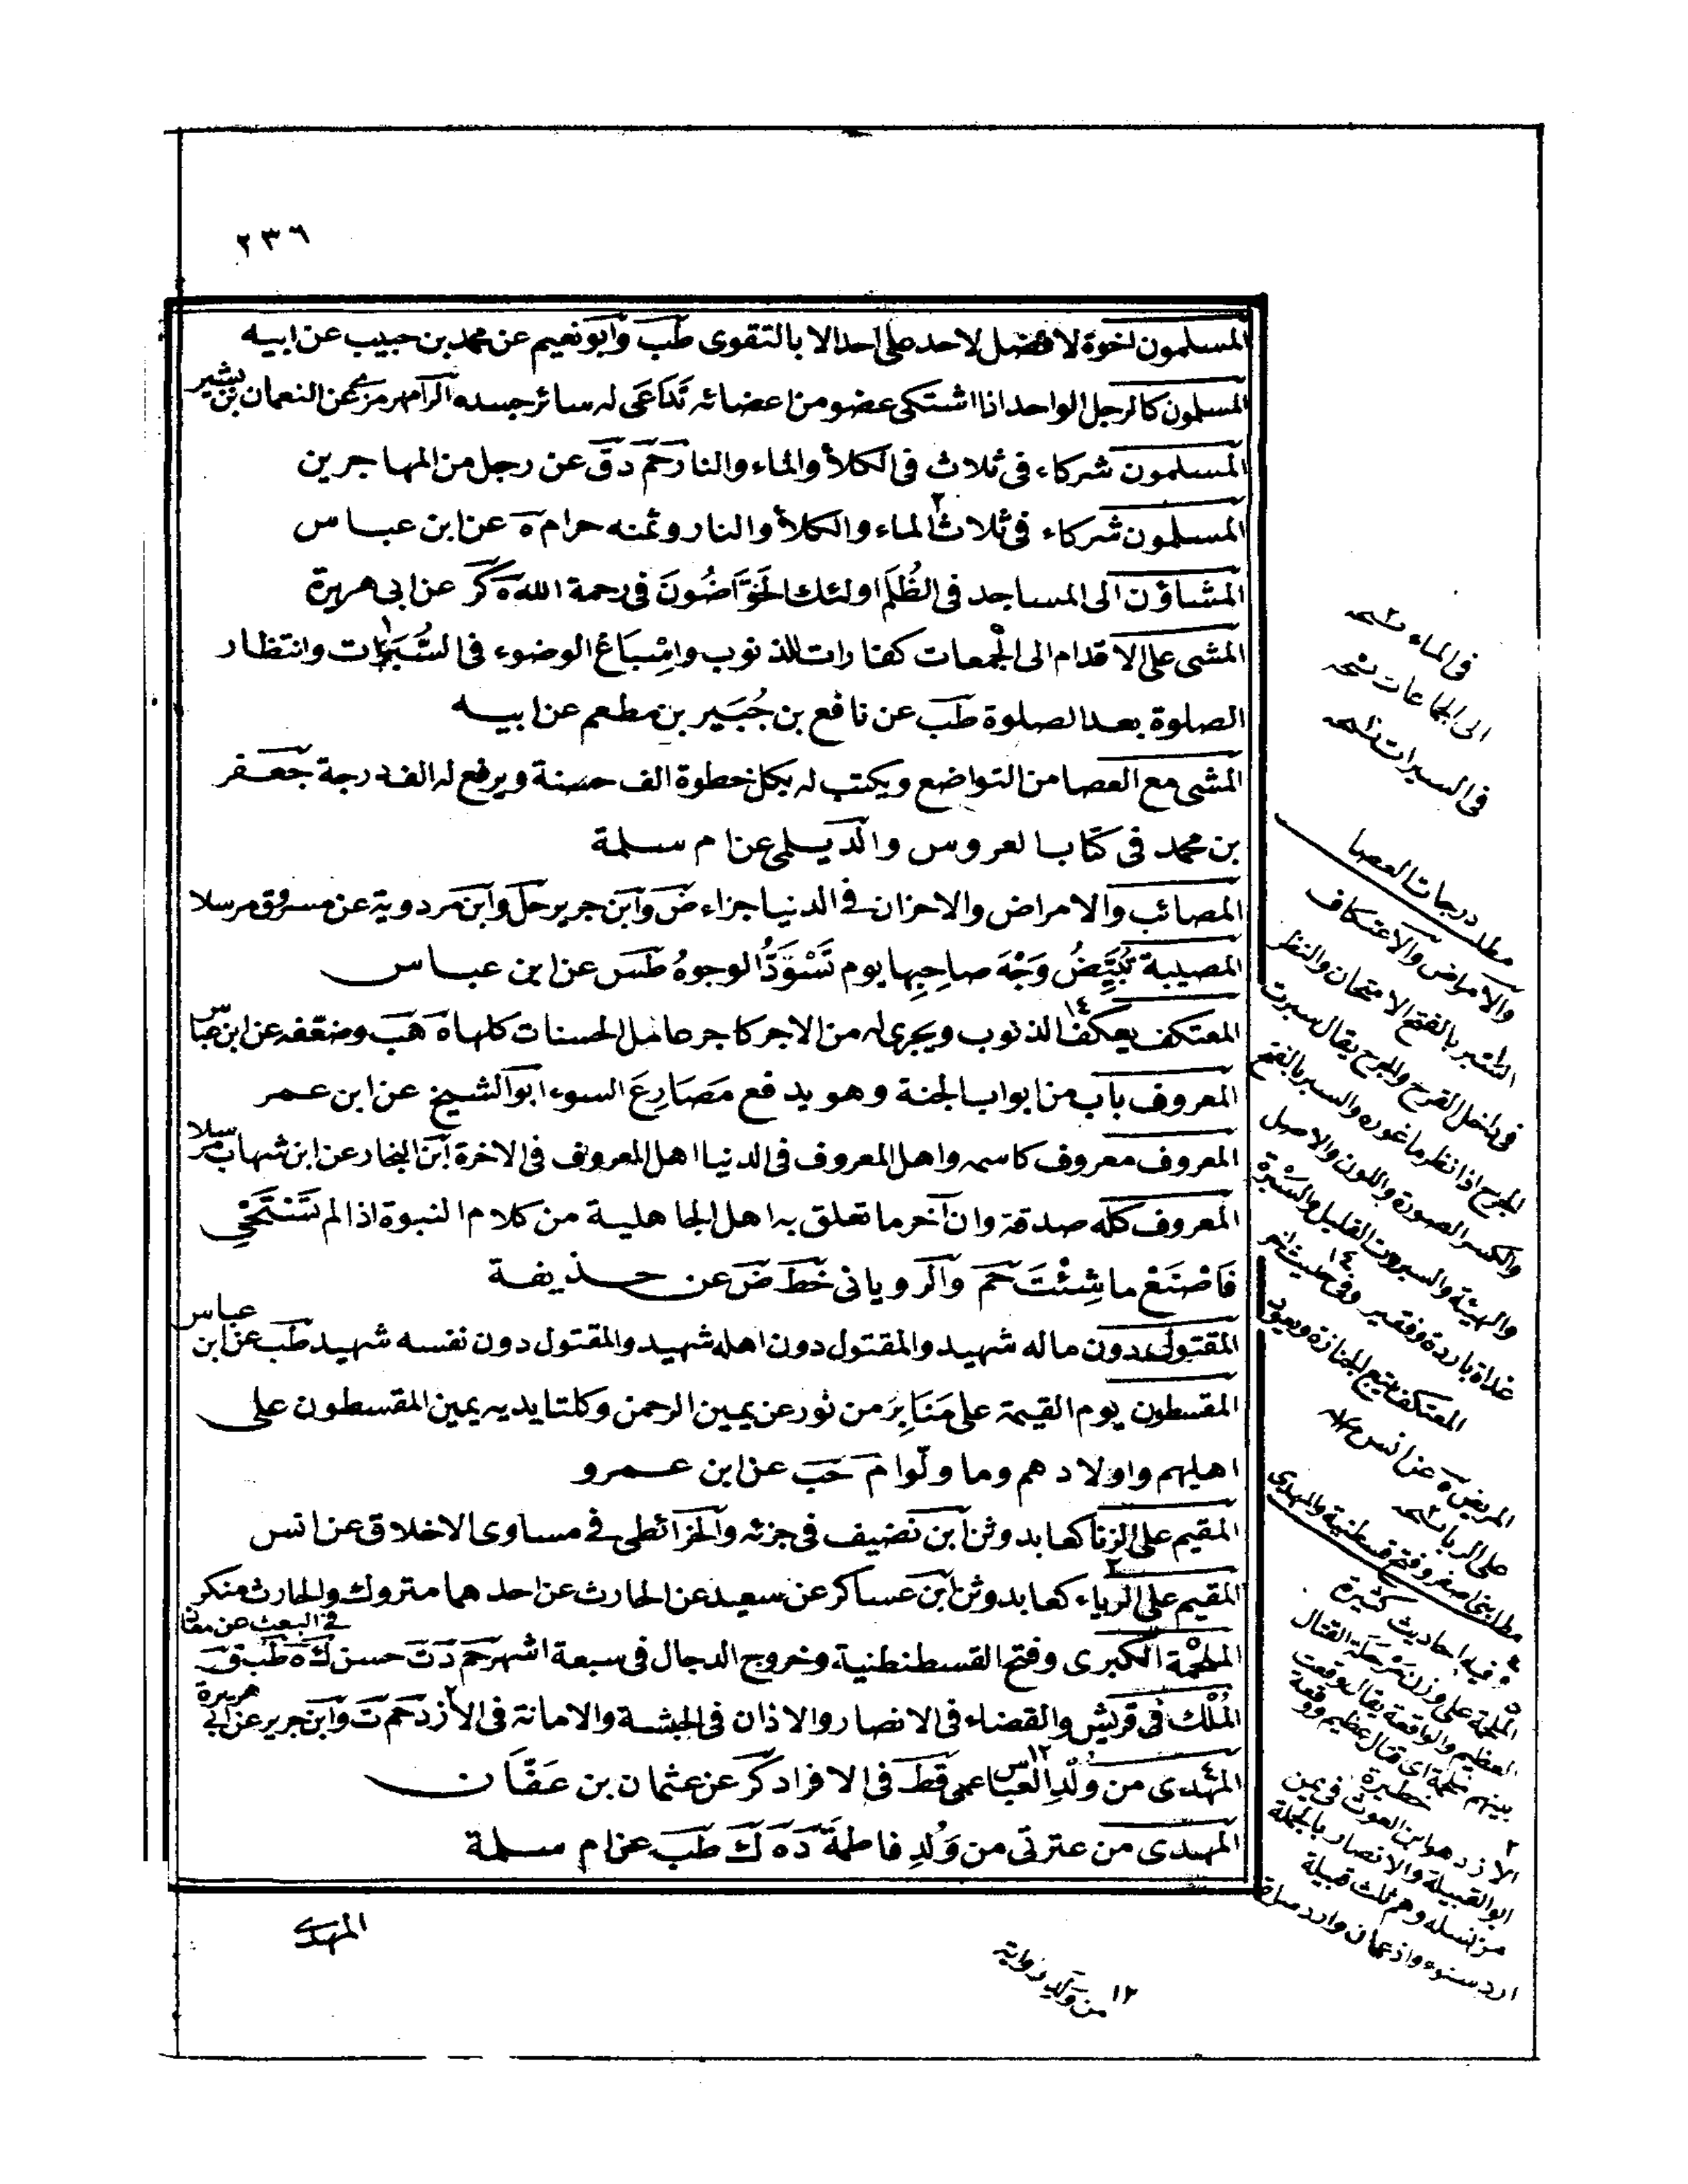 ٢٣٦
المسلمون اخوة لا فضل لاحد على احد الا بالتقوى طب وابو نعيم عن محمد بن حبيب عن ابيه
المسلمون كالرجل الواحد اذا اشتكى عضو من اعضائه تَدَاعَى له سائر جسده الرامهرمزى عن النعمان بن بشير
المسلمون شركاء فى ثلاث فى الكلأ والماء والنار حم د ق عن رجل من المهاجرين
المسلمون شركاء فى ثلاث الماء والكلأ والنار وثمنه حرام ه عن ابن عباس
المشاؤن الى المساجد فى الظُلَم اولئك الخَوَّاضُونَ فى رحمة الله ه كر عن ابى هريرة
المشى على الاقدام الى الجُمعات كفارات للذنوب وإسْبَاغ الوضوء فى السَّبَرات وانتظار
الصلوة بعد الصلوة طب عن نافع بن جُبَير بن مطعم عن ابيه
المشى مع العصا من التواضع ويكتب له بكل خطوة الف حسنة ويرفع له الف درجة جعفر
بن محمد فى كتاب العروس والديلمى عن ام سلمة
المصائب والامراض والاحزان فى الدنيا جزاء ض وابن جرير حل وابن مردوية عن مسروق مرسلا
المصيبة تُبَيِّضُ وَجْهَ صاحِبِها يوم تَسْوَدُّ الوجوهُ طس عن ابن عباس
المعتكف يعكف الذنوب ويجرى له من الاجر كاجر عامل الحسنات كلها ه هب وضعفه عن ابن عباس
المعروف باب من ابواب الجنة وهو يدفع مَصَارِعَ السوء ابو الشيخ عن ابن عمر
المعروف معروف كاسمه واهل المعروف فى الدنيا اهل المعروف فى الاخرة ابن النجار عن ابن شهاب مرسلا
المعروف كله صدقة وان آخر ما تعلق به اهل الجاهلية من كلام النبوة اذا لم تَسْتَحْىِ
فَاصْنَعْ ما شِئْتَ حم والرويانى خط ض عن حذيفة
المقتول دون ماله شهيد والمقتول دون اهله شهيد والمقتول دون نفسه شهيد طب عن ابن عباس
المقسطون يوم القيمة على مَنَابِرَ من نور عن يمين الرحمن وكلتا يديه يمين المقسطون على
اهليهم واولادهم وما ولّوا م حب عن ابن عمرو
المقيم على الزنا كعابد وثن ابن نضيف فى جزئه والخرائطى فى مساوى الاخلاق عن انس
المقيم على الرياء كعابد وثن ابن عساكر عن سعيد عن الحارث عن احدهما متروك والحارث منكر
الملحمة الكبرى وفتح القسطنطنية وخروج الدجال فى سبعة اشهر حم د ت حسن ك ه طب ق فى البعث عن معاذ
المُلْك فى قريش والقضاء فى الانصار والاذان فى الحبشة والامانة فى الأزد حم ت وابن جرير عن ابى هريرة
المهدى من وُلْدِ العباس عمى قط فى الافراد كر عن عثمان بن عَفَّان
المهدى من عترتى من وَلَدِ فاطمة د ه ك طب عن ام سلمة
المهدى
١٢ من وَلَدِ رواية
فى الماء نسخه
الى الجماعات نسخه
فى السبرات نسخه
مطلب درجات العصا
والامراض والاعتكاف
السبر بالفتح الامتحان والنظر
فى داخل القرح والجرح يقال سبرت
الجرح اذا نظر ما غوره والسبر بالفتح
والكسر الصورة واللون والاصل
والهيئة والسبروت القليل والسَبْرَة
غداة باردة وفقير وفى حديث آخر
١٤
المعتكف يتبع الجنازة ويعود
المريض ه عن انس
على الربا نسخه
مطلب بنى اصفر وفتح قسطنطنية والمهدى
وفيه احاديث كثيرة
الملحمة على وزن مَرْحَلَة القتال
العظيم والواقعة يقال وقعت
بينهم ملحمة اى قتال عظيم ووقعة
خطيرة
الازد هو ابن الغوث فى يمن
ابو القبيلة والانصار بالجملة
من نسله وهم ثلث قبيلة
ازد سنوء وازد عمان وازد سراة